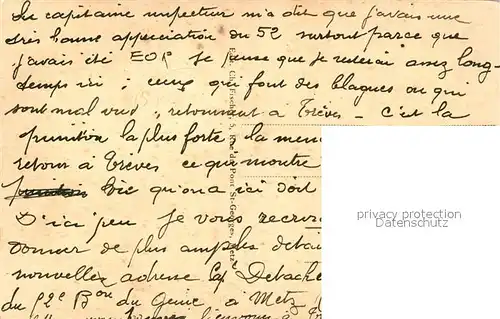 Le capitaine inspecteur m'a dit que j'avais une
très bonne appréciation du 52 surtout parce que
j'avais été EOR je pense que je resterai assez long-
temps ici ; ceux qui font des blagues ou qui
sont mal vus, retournent à Trèves - c'est la
punition la plus forte, la
retour à Trèves ce qui montre
vie qu'on a ici doit
D'ici peu je vous
donner de plus amples
nouvelle adresse
du 12e Bon du Génie à Metz
privacy protection
Datenschutz
Ed. Ch. Fischer, 5, Rue du Pont St-Georges, Metz